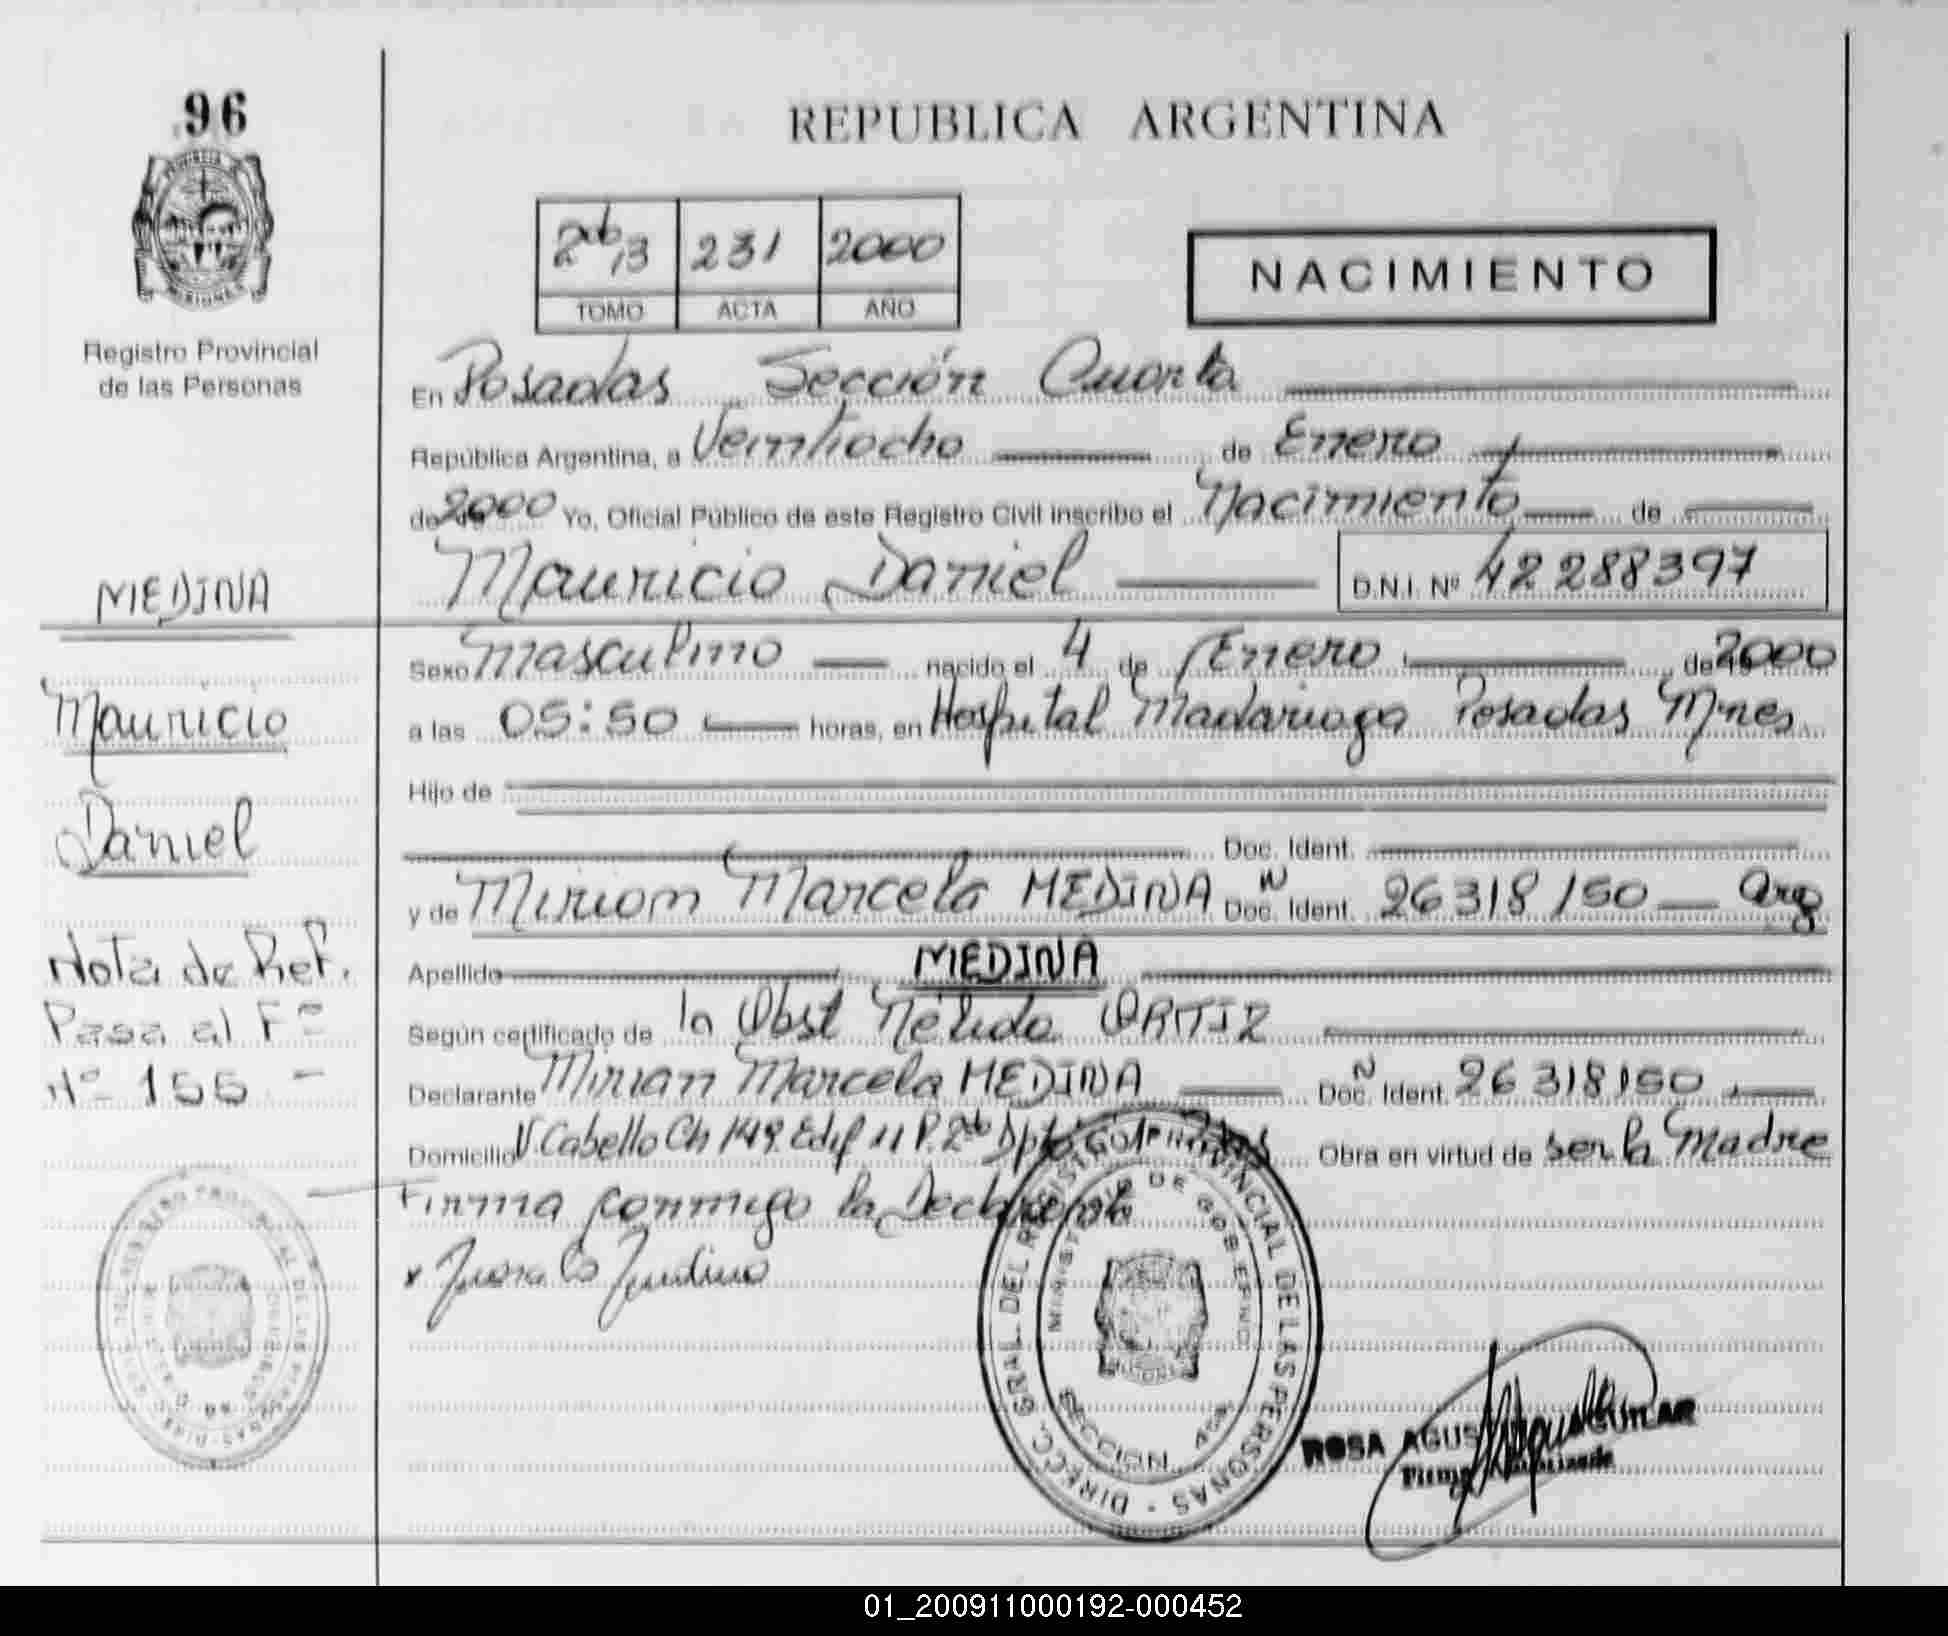 96
REPUBLICA ARGENTINA
2000
231
TOMO ACTA AÑO
NACIMIENTO
Registro Provincial
de las Personas
En Posadas Sección Cuarta
República Argentina, a Veintiocho de Enero
de 2000 Yo, Oficial Público de este Registro Civil inscribo el Nacimiento de
Mauricio Daniel D.N.I. Nº 42288397
Sexo Masculino nacido el 4 de Enero de 2000
a las 05:50 horas, en Hospital Madariaga Posadas Mnes.
Hijo de
Doc. Ident.
y de Miriam Marcela MEDINA Doc. Ident. 26318150 Arg
Apellido MEDINA
Según certificado de la Obst Nélida ORTIZ
Declarante Mirian Marcela MEDINA Doc. Ident. 26318150
Domicilio V. Cabello Ch 149. Edif 11 P. 2do Obra en virtud de ser la Madre
Firma conmigo la Declarante
MEDINA
Mauricio
Daniel
Nota de Ref.
Pasa al Fº
Nº 155 -
DIRECC. GRAL. DEL REGISTRO PROVINCIAL DE LAS PERSONAS
MINISTERIO DE GOBIERNO
SECCION 4ta
MISIONES
ROSA AGUILAR
01_200911000192-000452